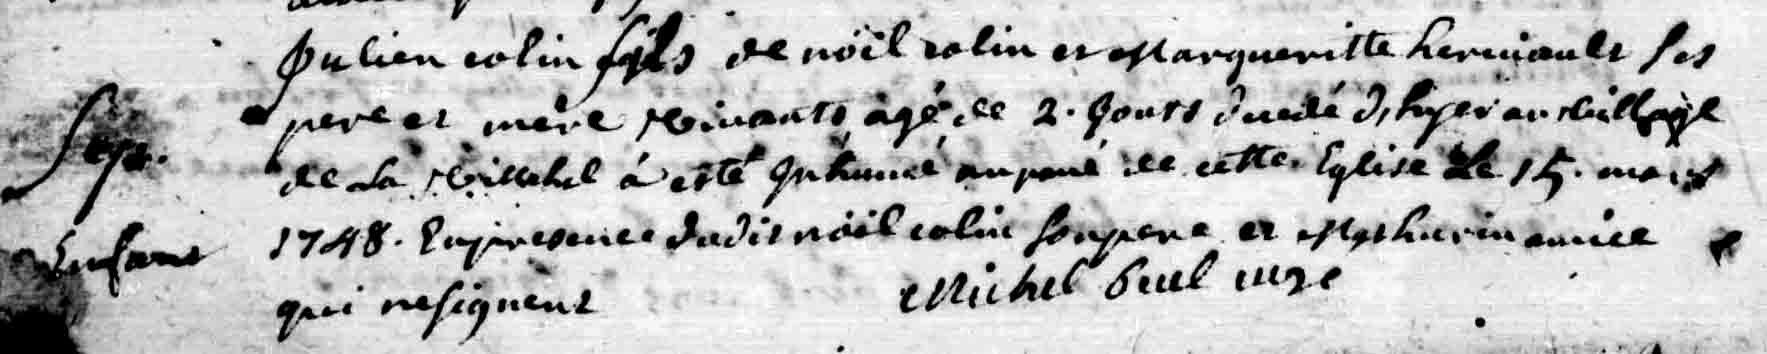 Julien colin fils de nöel colin et Margueritte heruiault ses
Sep.
pere et mère vivants, agé de 2. Jours decedé d'hyer au village
de La á esté Inhumé au pavé de cette Eglise Le 15. mars
Enfant
1748. En presence dudit nöel colin son pere et Mathurin
qui ne signent Michel